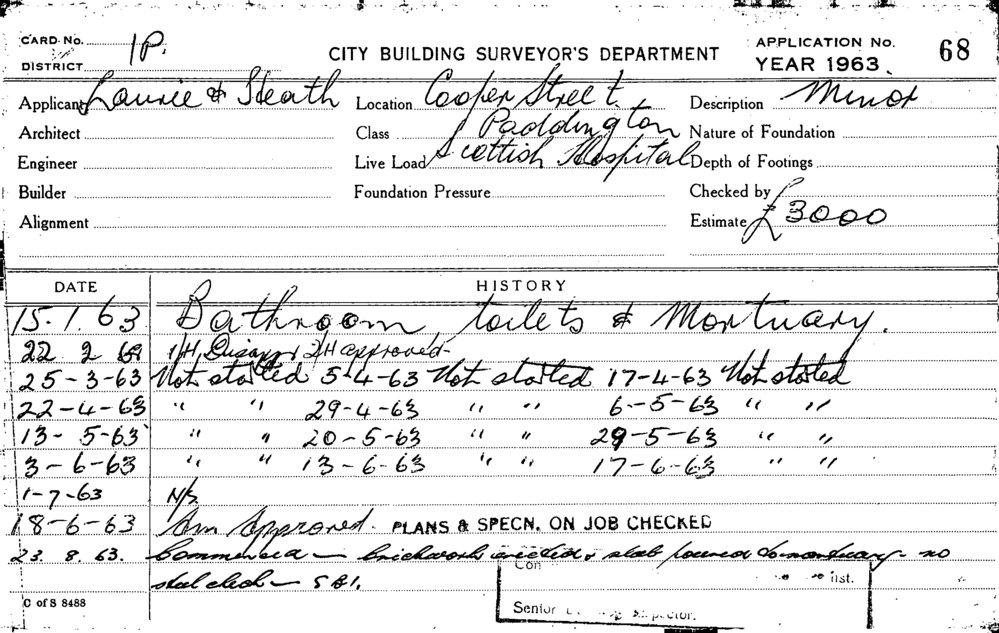 CARD No. 1P. CITY BUILDING SURVEYOR'S DEPARTMENT APPLICATION No. 68
DISTRICT YEAR 1963.
Applicant Laurie & Heath Location Cooper Street Description Minor
Architect Class Paddington Nature of Foundation
Engineer Live Load Scottish Hospital Depth of Footings
Builder Foundation Pressure Checked by
Alignment Estimate £3000
DATE HISTORY
15.1.63 Bathroom, toilets & Mortuary.
22 2 63 approved
25-3-63 Not started 5-4-63 Not started 17-4-63 Not started
22-4-63 " " 29-4-63 " " 6-5-63 " "
13-5-63 " " 20-5-63 " " 29-5-63 " "
3-6-63 " " 13-6-63 " " 17-6-63 " "
1-7-63 N/S.
18-6-63 Am Approved. PLANS & SPECN. ON JOB CHECKED
23.8.63. Commenced — brickwork erected & slab poured to mortuary - no
steel check —
Con
Senior
C of S 8488